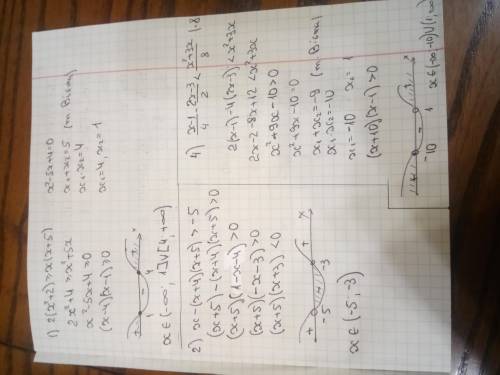 1) 2(x²+2) ⩾ x(x+5)
2x²+4 ⩾ x²+5x
x²-5x+4 ⩾ 0
(x-4)(x-1) ⩾ 0
1 4 x
x ∈ (-∞; 1] ∪ [4; +∞)
x²-5x+4=0
x₁+x₂=5 (т Виета)
x₁·x₂=4
x₁=4, x₂=1
2) x-(x+4)(x+5) > -5
(x+5)-(x+4)(x+5) > 0
(x+5)(1-x-4) > 0
(x+5)(-x-3) > 0
(x+5)(x+3) < 0
+ - +
-5 -3 x
x ∈ (-5; -3)
4) x-1/4 - 2x-3/2 < x²+3x/8 |·8
2(x-1)-4(2x-3) < x²+3x
2x-2-8x+12 < x²+3x
x²+9x-10 > 0
x²+9x-10=0
x₁+x₂=-9 (т Виета)
x₁·x₂=-10
x₁=-10 x₂=1
(x+10)(x-1) > 0
-10 1 x
x ∈ (-∞; -10) ∪ (1; ∞)